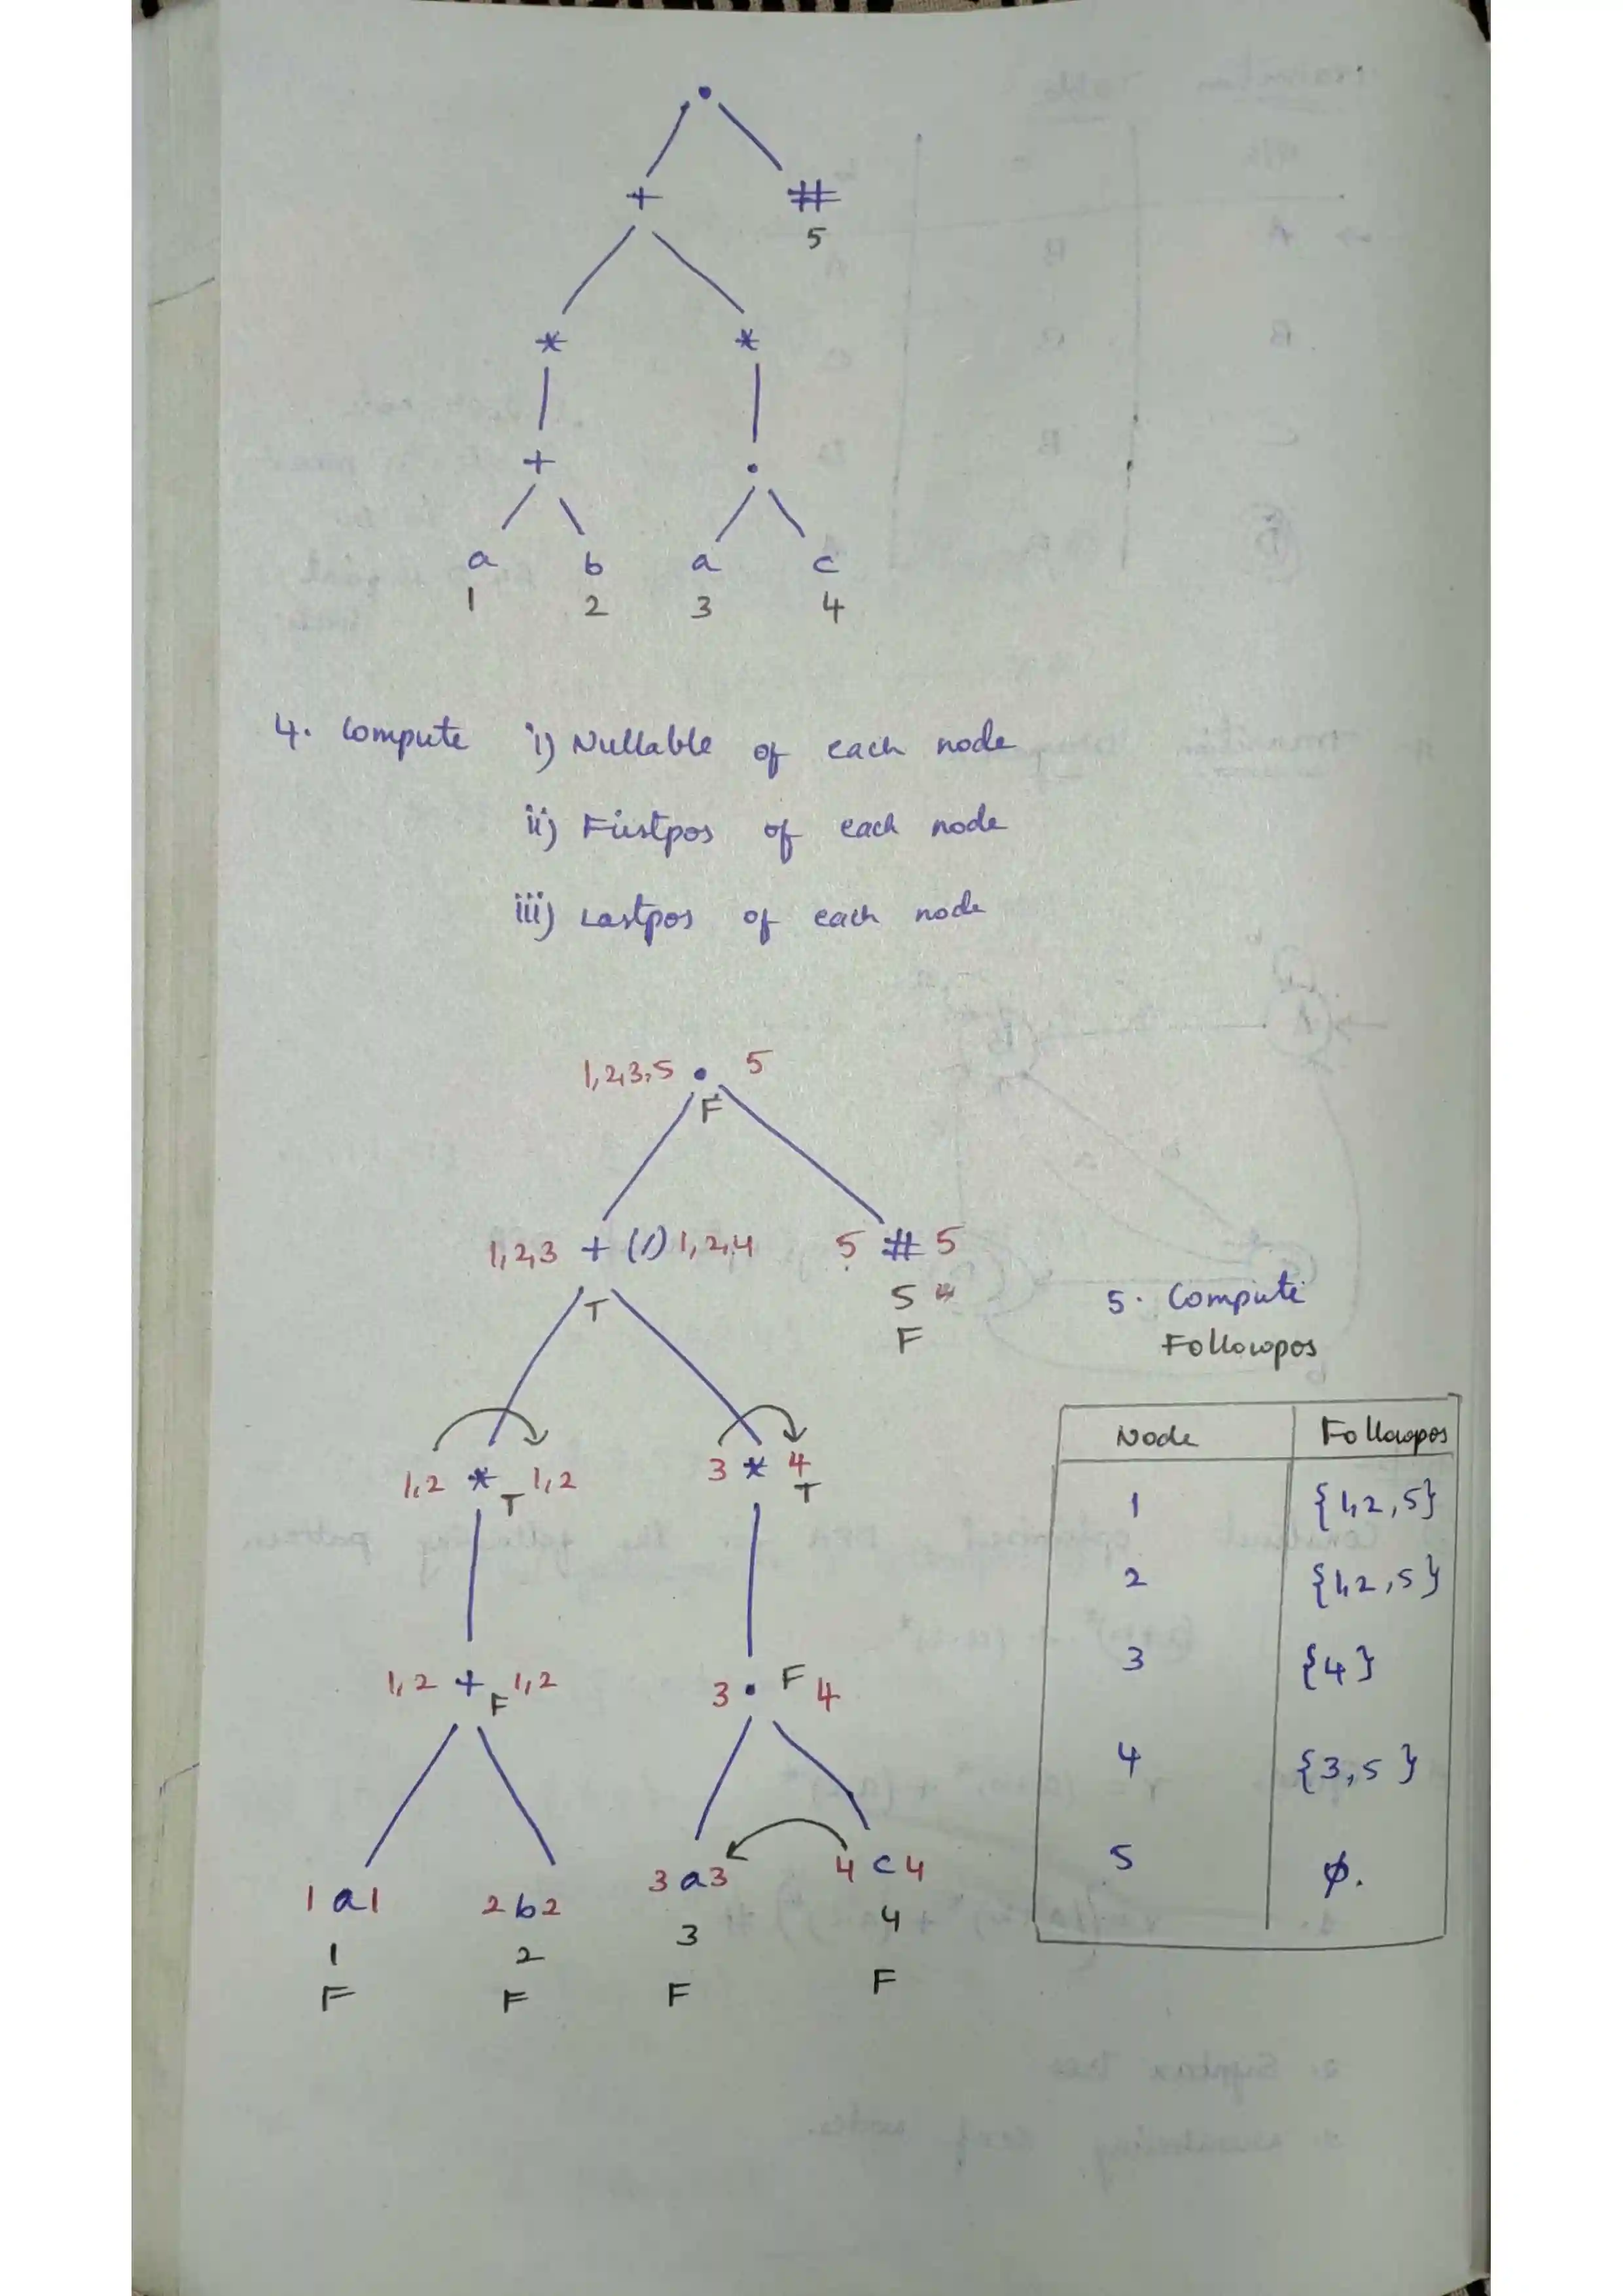 .
+ #
5
* *
+ .
a b a c
1 2 3 4
4. Compute i) Nullable of each node
ii) Firstpos of each node
iii) Lastpos of each node
1,2,3,5 . 5
F
1,2,3 + (/) 1,2,4 5 # 5
T 5
F
5. Compute
Followpos
1,2 * 1,2 3 * 4
T T
1,2 + 1,2 3 . F 4
F
1 a 1 2 b 2 3 a 3 4 c 4
1 2 3 4
F F F F
Node Followpos
1 {1,2,5}
2 {1,2,5}
3 {4}
4 {3,5}
5 ϕ.